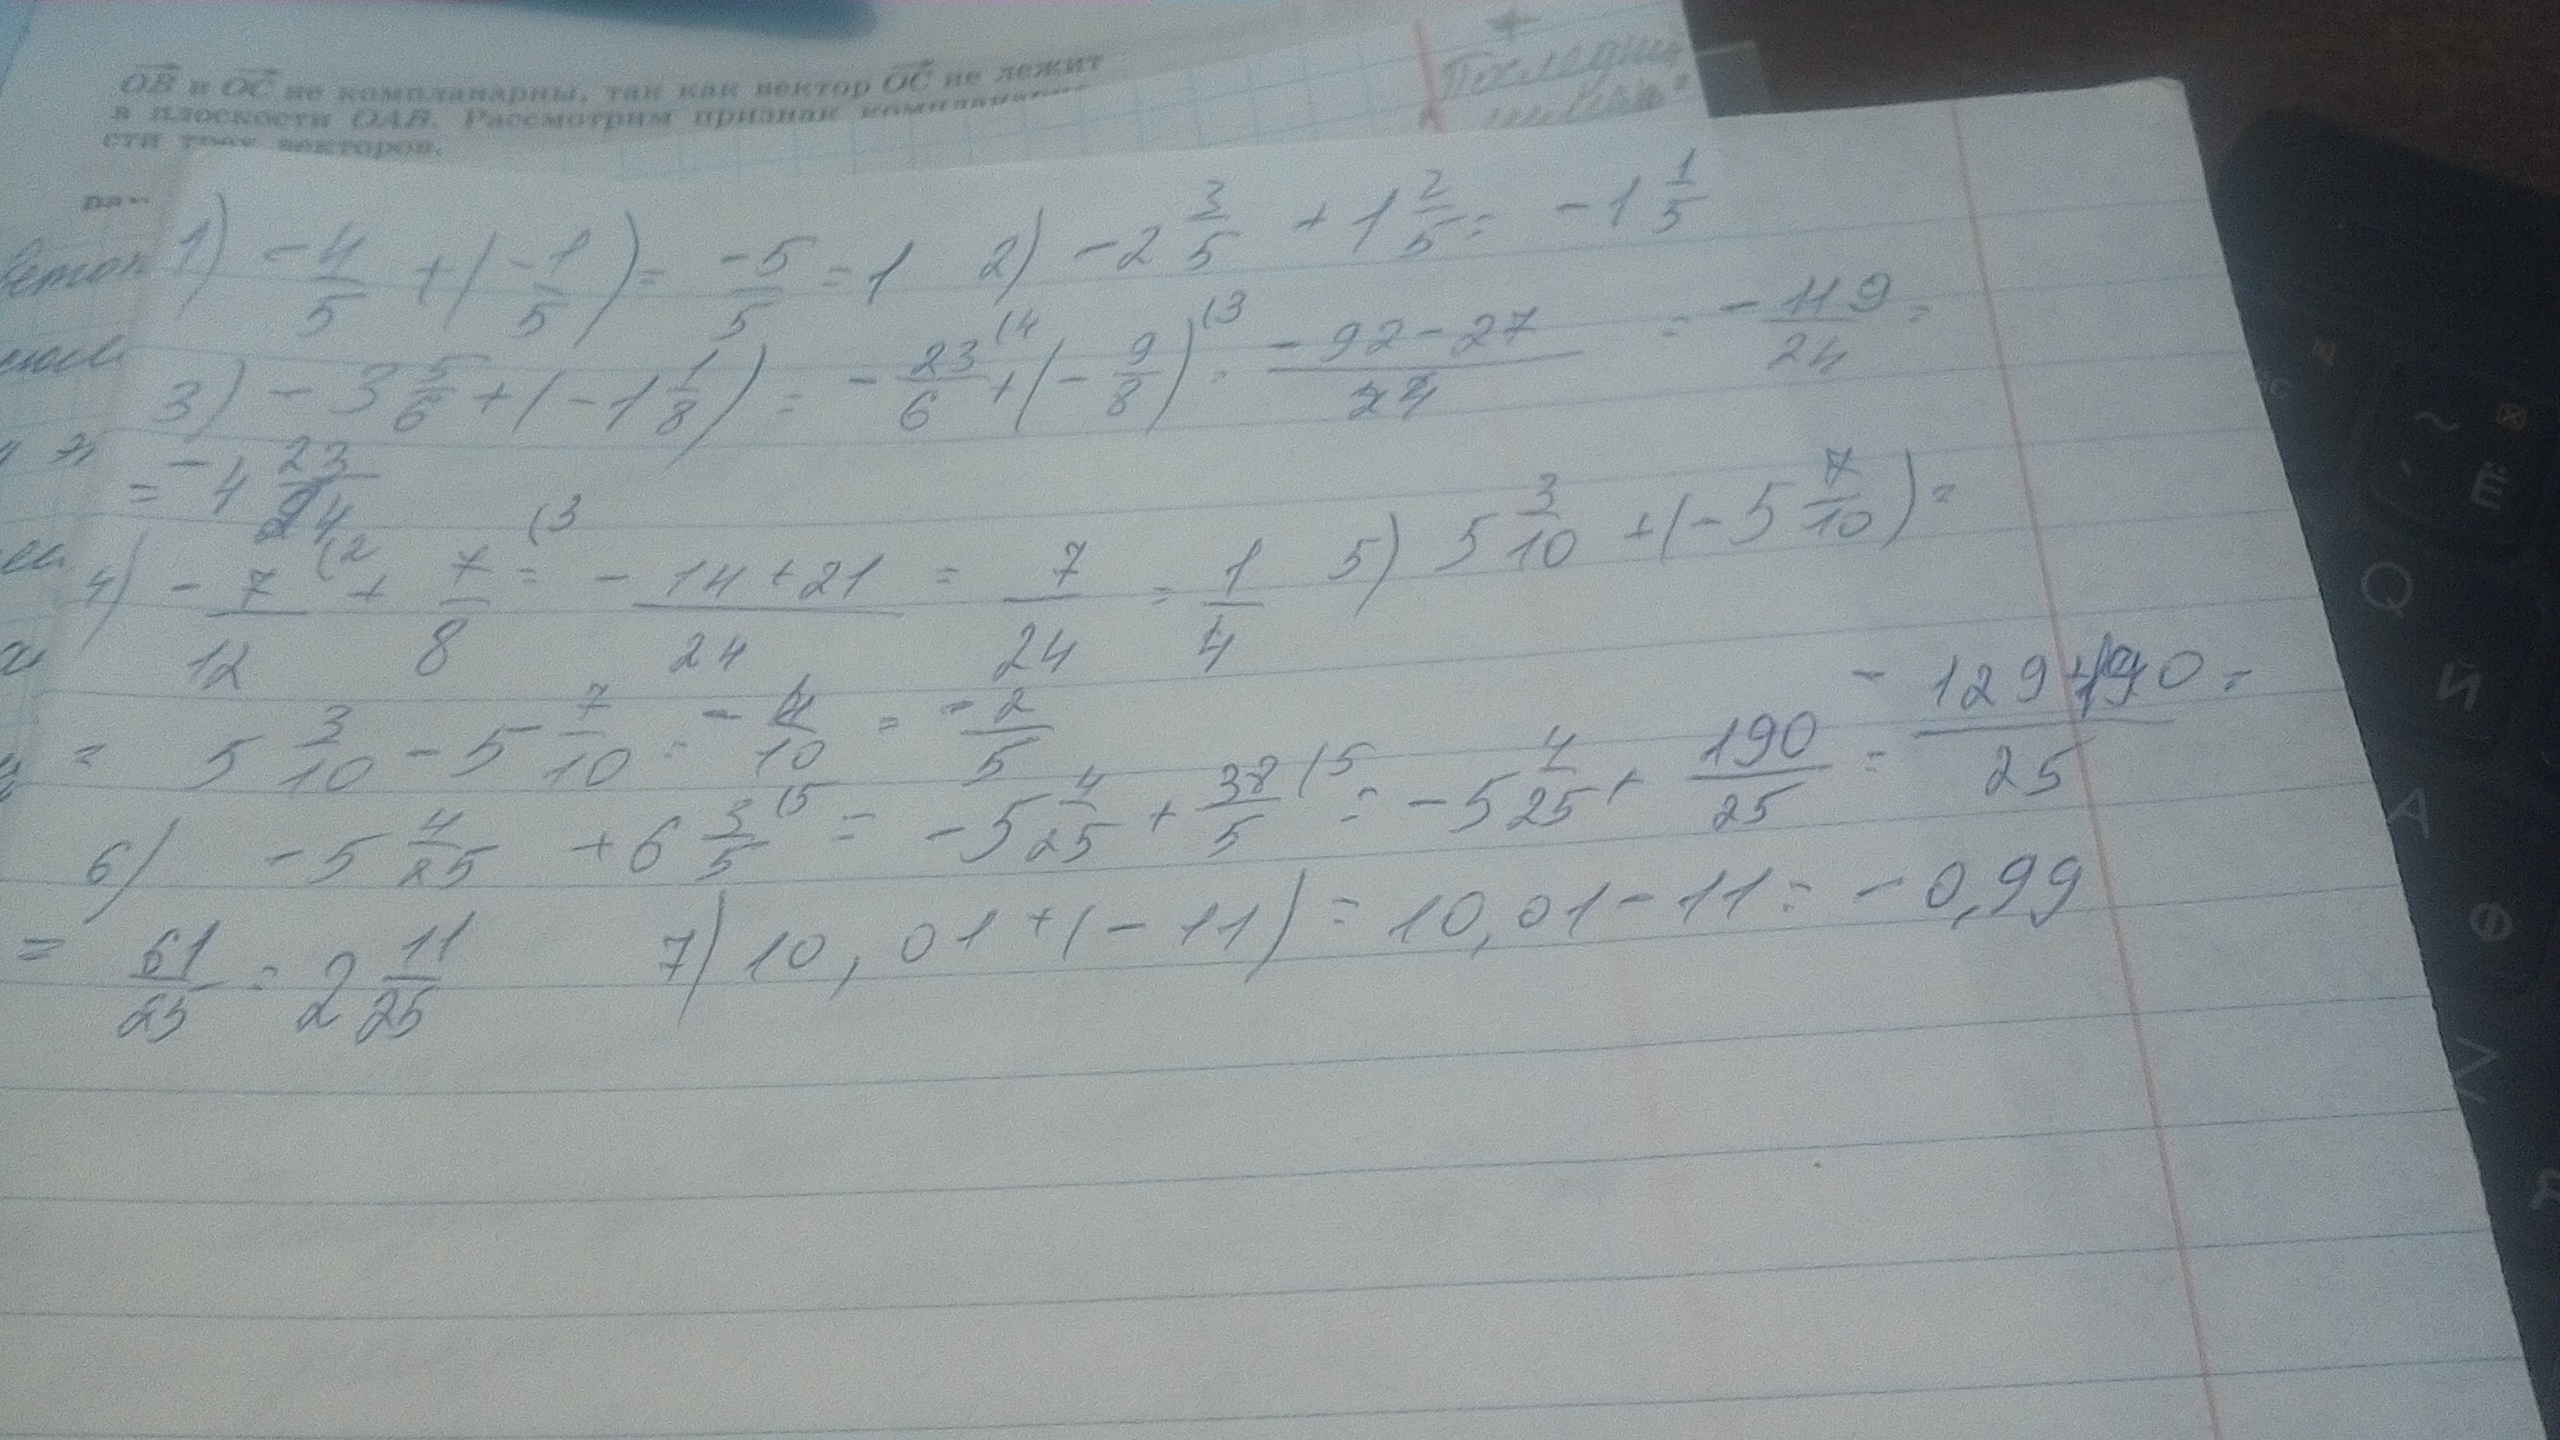 OB и OC не компланарны, так как вектор OC не лежит
в плоскости OAB. Рассмотрим признак
сти трех векторов.
1) -4/5 + (-1/5) = -5/5 = 1 2) -2 3/5 + 1 2/5 = -1 1/5
3) -3 5/6 + (-1 1/8) = -23/6 (4 + (-9/8) (3 = -92-27/24 = -119/24 =
= -4 23/24
4) -7/12 (2 + 7/8 (3 = -14+21/24 = 7/24 = 1/4 5) 5 3/10 + (-5 7/10) =
= 5 3/10 - 5 7/10 = -4/10 = -2/5
6) -5 4/25 + 6 3/5 (5 = -5 4/25 + 38/5 (5 = -5 4/25 + 190/25 = -129+190/25 =
= 61/25 = 2 11/25 7) 10,01+(-11) = 10,01-11 = -0,99
Ё
Q
Й
A
Ф
Z
Я